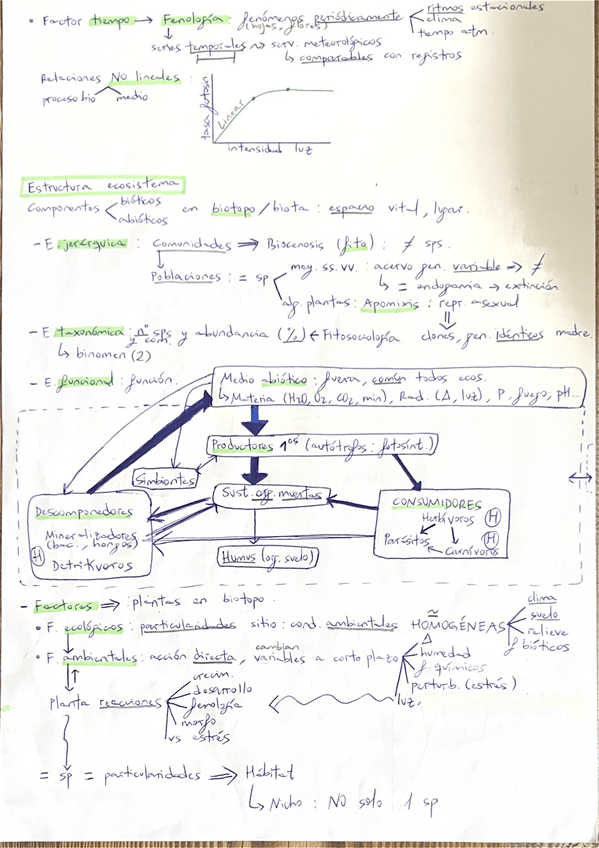 • Factor tiempo → Fenología fenómenos periódicamente ritmos estacionales
(hojas, flores) clima
tiempo atm.
series temporales ~> serv. meteorológicos
↳ comparables con registros
Relaciones NO lineales :
proceso bio medio
tasa fotosín
Linear
intensidad luz
Estructura ecosistema
Componentes bióticos
abióticos en biotopo/biota : espacio vital, lugar.
- E. jerárquica : Comunidades ⇒ Biocenosis (fito) : ≠ sps.
Poblaciones : = sp may. ss. vv. : acervo gen. variable ⇒ ≠
↳ = endogamia → extinción
alg. plantas : Apomixis : repr. asexual
- E taxonómica : nº sps y abundancia (%) ← Fitosociología clones, gen. Idénticos madre.
y com.
↳ binomen (2)
- E. funcional : función.
Medio abiótico : fuera, común todos ecos.
↳ Materia (H2O, O2, CO2, min), Rad. (Δ, luz), P. fuego, pH...
Productores 1os (autótrofos : fotosínt.)
Simbiontes
Sust. org. muertas
Descomponedores
Mineralizadores
(bac., hongos)
H Detritívoros
CONSUMIDORES
Herbívoros H
Parásitos H
Carnívoros
Humus (org. suelo)
- Factores ⇒ plantas en biotopo.
• F. ecológicos : particularidades sitio : cond. ambientales HOMOGÉNEAS clima
≃ suelo
relieve
f bióticos
• F. ambientales : acción directa, cambian variables a corto plazo Δ
humedad
f. químicos
perturb. (estrés)
luz.
Planta reacciones crecim.
desarrollo
fenología
morfo
vs estrés
= sp = particularidades ⇒ Hábitat
↳ Nicho : NO solo 1 sp